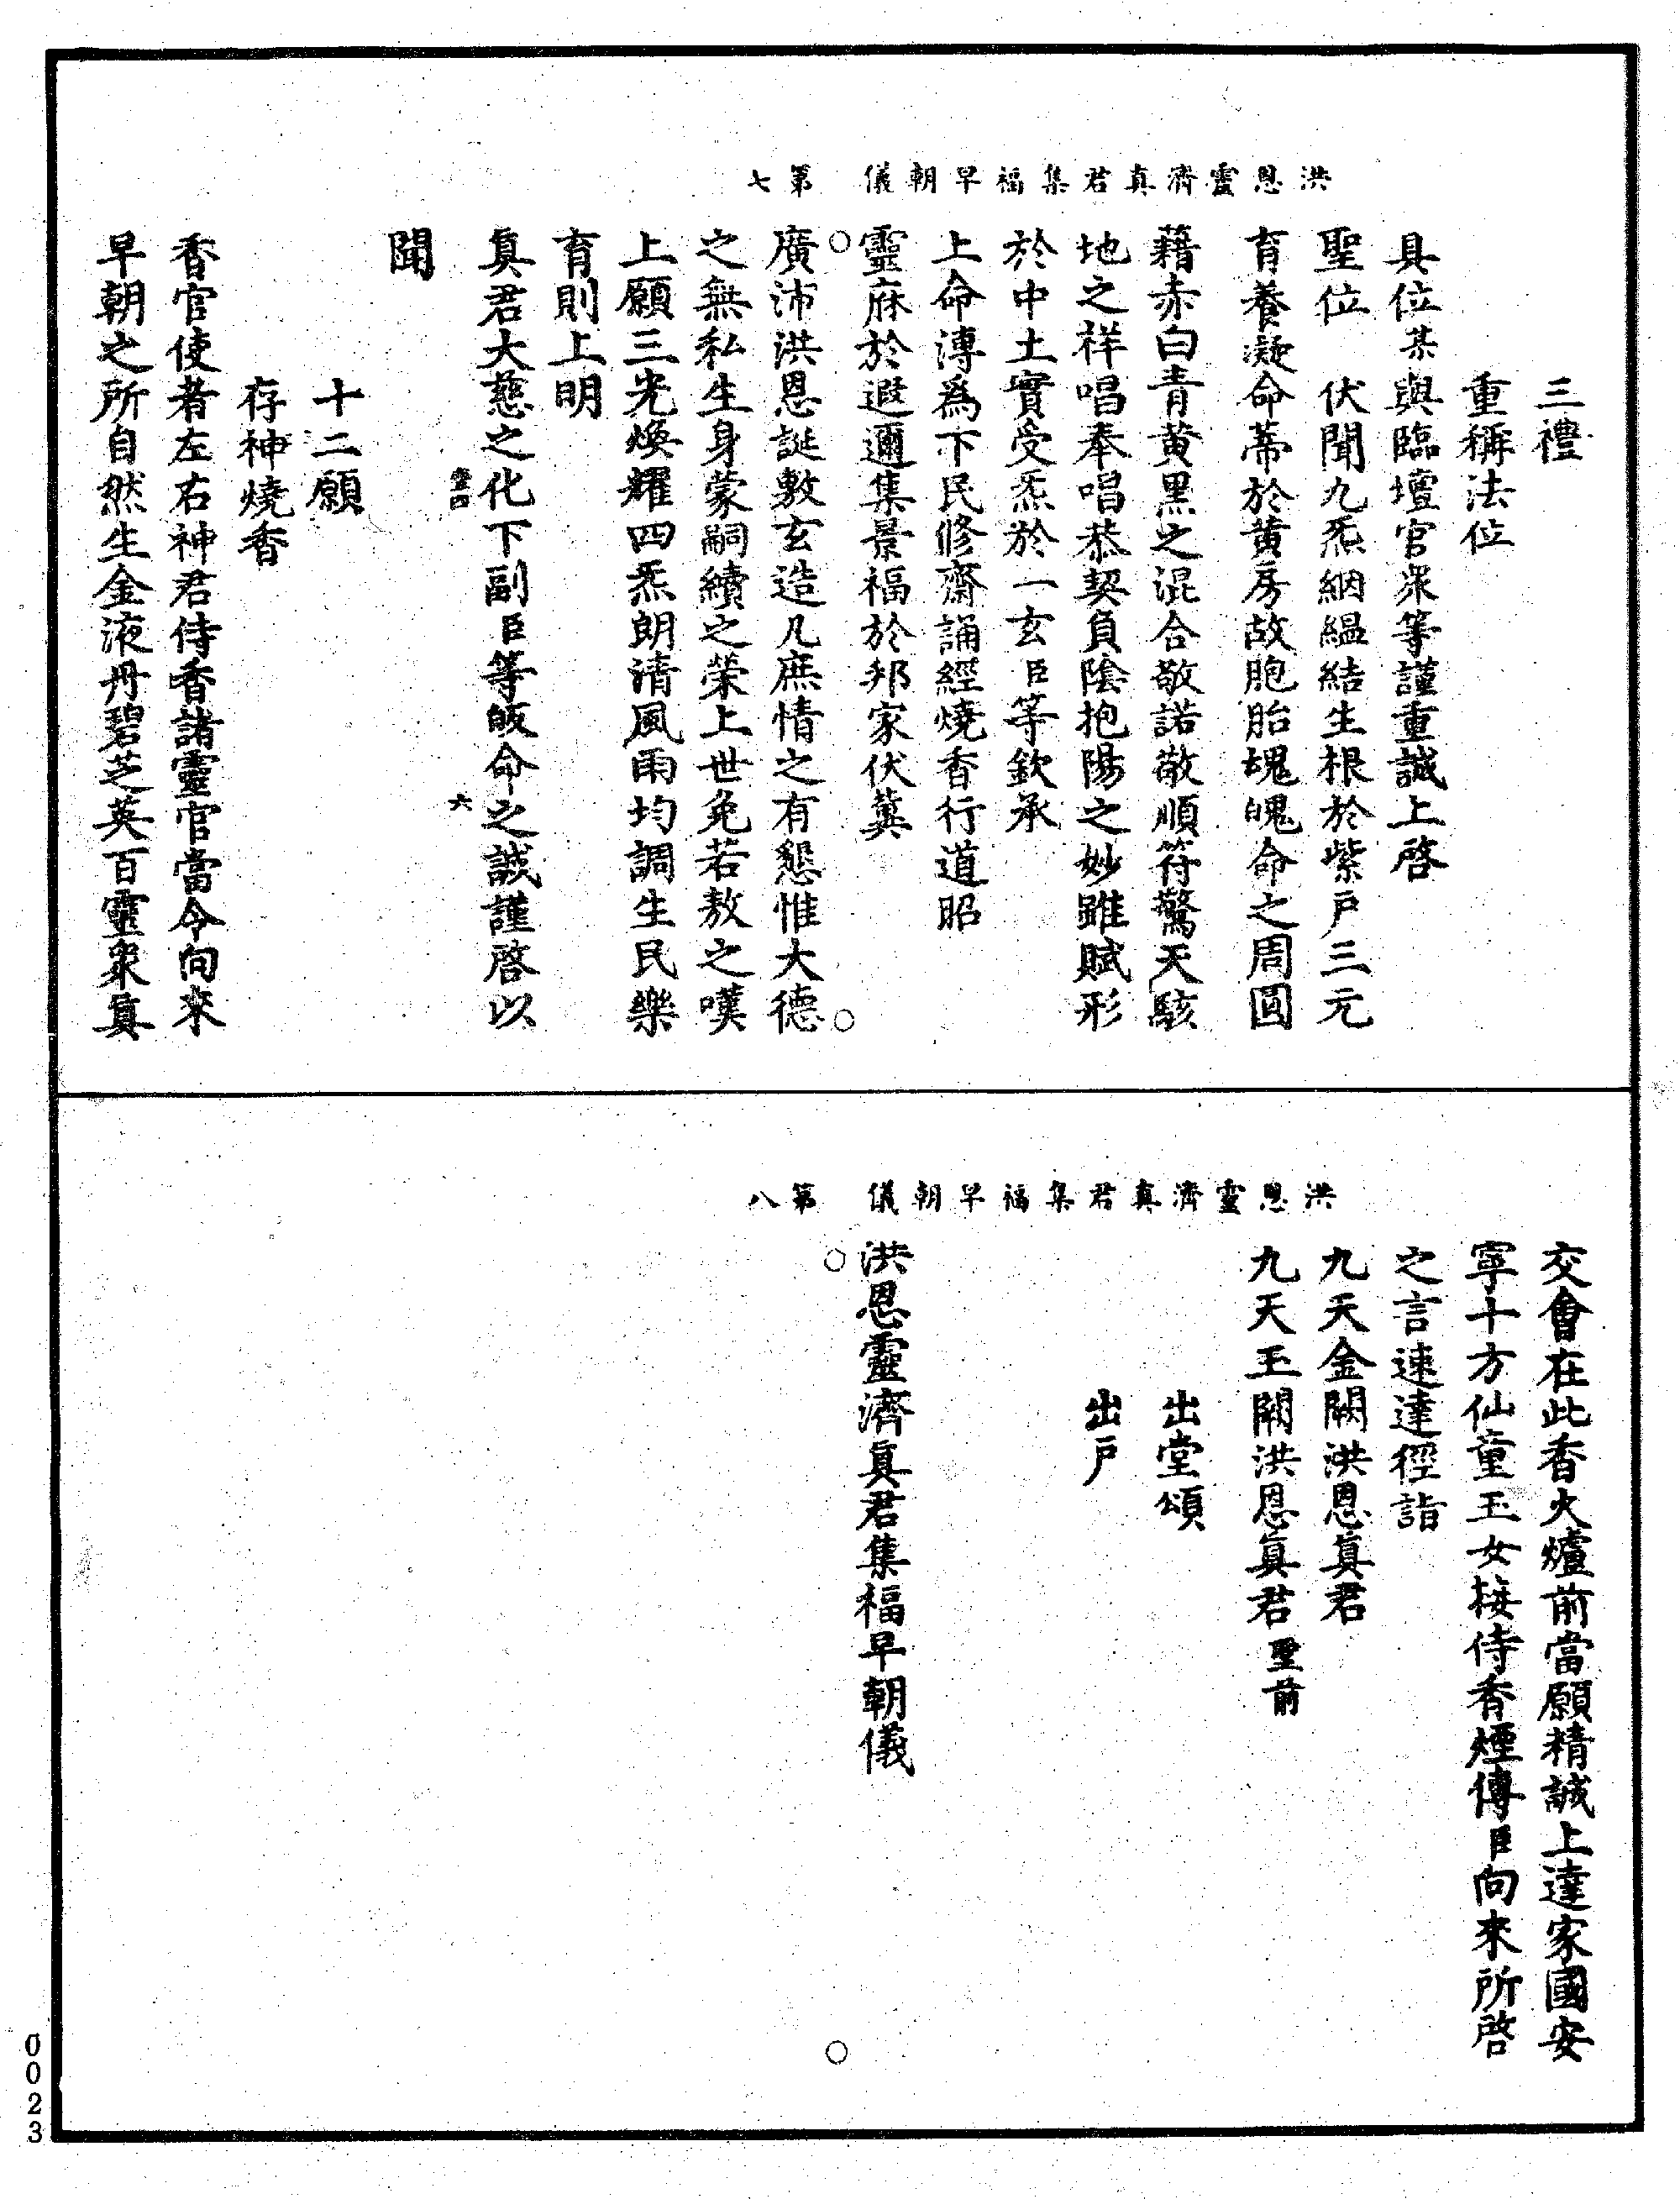 洪恩靈濟真君集福早朝儀　第七
三禮
重稱法位
具位某與臨壇官眾等謹重誠上啓
聖位　伏聞九炁絪縕結生根於紫戶三元
育養凝命蒂於黄房故胞胎魂魄命之周圓
藉赤白青黄黑之混合敬諾敬順符驚天駭
地之祥唱奉唱恭契負陰抱陽之妙雖賦形
於中土實受炁於一玄臣等欽承
上命溥爲下民修齋誦經燒香行道昭
靈庥於遐邇集景福於邦家伏冀
廣沛洪恩誕敷玄造凡庶情之有懇惟大德
之無私生身蒙嗣續之榮上世免若敖之嘆
上願三光煥耀四炁朗清風雨均調生民樂
育則上明
真君大慈之化下副臣等皈命之誠謹啓以
六
聞
十二願
存神燒香
香官使者左右神君侍香諸靈官當令向來
早朝之所自然生金液丹碧芝英百靈衆真
洪恩靈濟真君集福早朝儀　第八
交會在此香火爐前當願精誠上達家國安
寧十方仙童玉女接侍香煙傳臣向來所啓
之言速達徑詣
九天金闕洪恩真君
九天玉闕洪恩真君聖前
出堂頌
出戶
洪恩靈濟真君集福早朝儀
0023